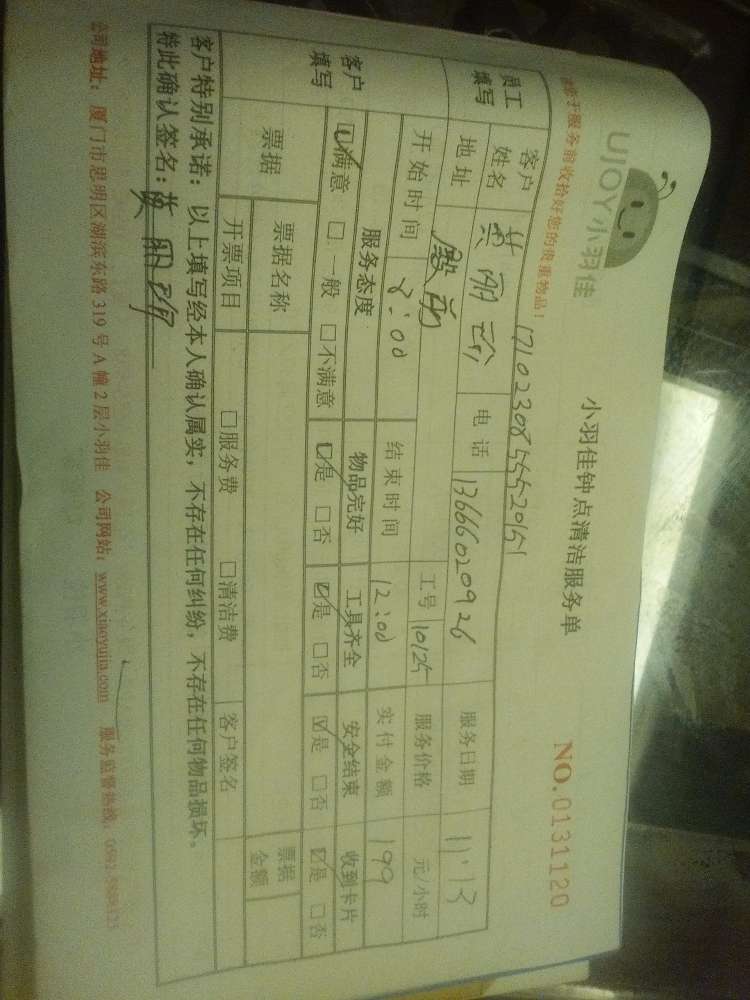 UJOY小羽佳
小羽佳钟点清洁服务单
NO.0131120
请于服务前收拾好您的贵重物品！
171023085552015
员工填写 客户姓名 黄丽 电话 13666020926 服务日期 11.13
地址 工号 10125 服务价格 元/小时
开始时间 8:00 结束时间 12:00 实付金额 199
客户填写 服务态度 物品完好 工具齐全 安全结束 收到卡片
☑满意 □一般 □不满意 ☑是 □否 ☑是 □否 ☑是 □否 ☑是 □否
票据 票据名称 票据金额
开票项目 □服务费 □清洁费 客户签名
客户特别承诺：以上填写经本人确认属实，不存在任何纠纷，不存在任何物品损坏。
特此确认签名：黄丽
公司地址：厦门市思明区湖滨东路319号A幢2层小羽佳 公司网站：www.xiaoyujia.com 服务监督热线：